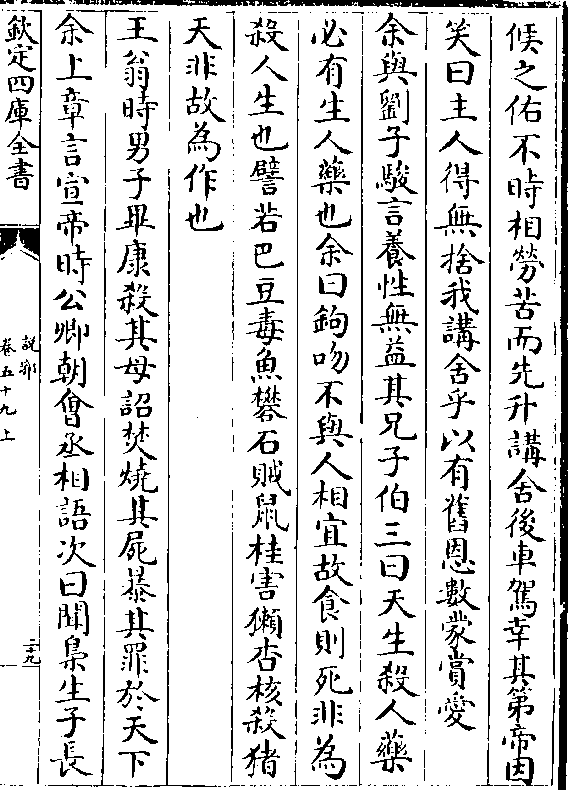 候之佑不時相勞苦而先升講舍後車駕幸其第帝因
笑曰主人得無捨我講舍乎以有舊恩數蒙賞愛
余與劉子駿言養性無益其兄子伯三曰天生殺人藥
必有生人藥也余曰鉤吻不與人相宜故食則死非為
殺人生也譬若巴豆毒魚礬石賊鼠桂害獺杏核殺猪
天非故為作也
王翁時男子畢康殺其母詔焚燒其屍暴其罪於天下
余上章言宣帝時公卿朝會丞相語次曰聞梟生子長
欽定四庫全書
說郛
卷五十九上
二十九